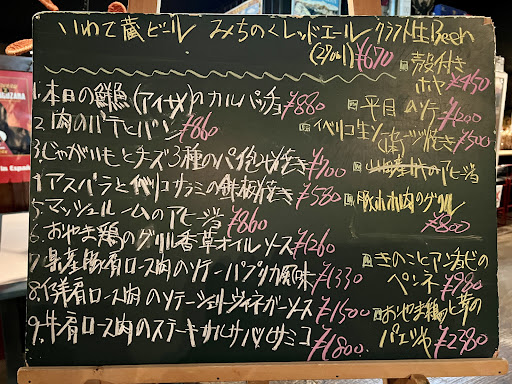 いわて蔵ビール みちのくレッドエール クラフト生Beer
(270ml) ¥670
1.本日の鮮魚(アイナメ)のカルパッチョ ¥880
2.肉のパテとパン ¥860
3.じゃがいもとチーズ3種のパイ包み焼き ¥700
4.アスパラとイベリコサラミの鉄板焼き ¥580
5.マッシュルームのアヒージョ ¥860
6.おやま鶏のグリル香草オイルソース ¥1260
7.県産豚肩ロース肉のソテーパプリカ風味 ¥1330
8.仔羊肩ロース肉のソテーシェリーヴィネガーソース ¥1500
9.牛肩ロース肉のステーキサルサバルサミコ ¥1800
殻付き
ホヤ ¥450
平目のソテー ¥1200
イベリコ生ソーセージ焼き
(1本) ¥500
のアヒージョ
豚ホホ肉のグリル
¥800
きのことアンチョビの
ペンネ ¥980
おやま鶏と芽の
パエリヤ ¥2380